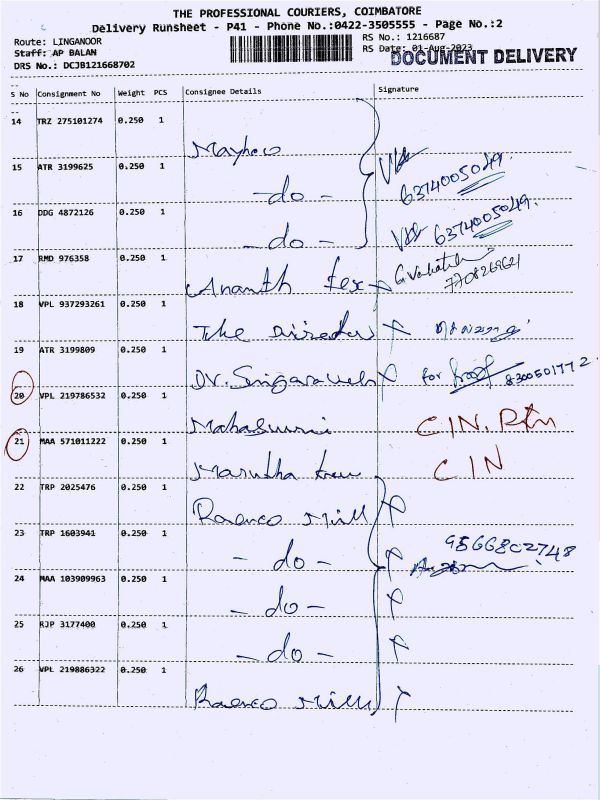 THE PROFESSIONAL COURIERS, COIMBATORE
Delivery Runsheet - P41 - Phone No.:0422-3505555 - Page No.:2
Route: LINGANOOR RS No.: 1216687
Staff: AP BALAN RS Date: 01-Aug-2023
DOCUMENT DELIVERY
DRS No.: DCJB121668702
S No Consignment No Weight PCS Consignee Details Signature
14 TRZ 275101274 0.250 1
15 ATR 3199625 0.250 1 -do- 6374005049.
16 DDG 4872126 0.250 1 -do- 6374005049.
17 RMD 976358 0.250 1 Ananth tex
18 VPL 937293261 0.250 1 The Director
19 ATR 3199809 0.250 1 Dr. for
20 VPL 219786532 0.250 1 CIN. Rtn
21 MAA 571011222 0.250 1 CIN
22 TRP 2025476 0.250 1 Mill
23 TRP 1603941 0.250 1 - do - 9566802748
24 MAA 103909963 0.250 1 - do -
25 RJP 3177400 0.250 1 - do -
26 VPL 219886322 0.250 1 Mill